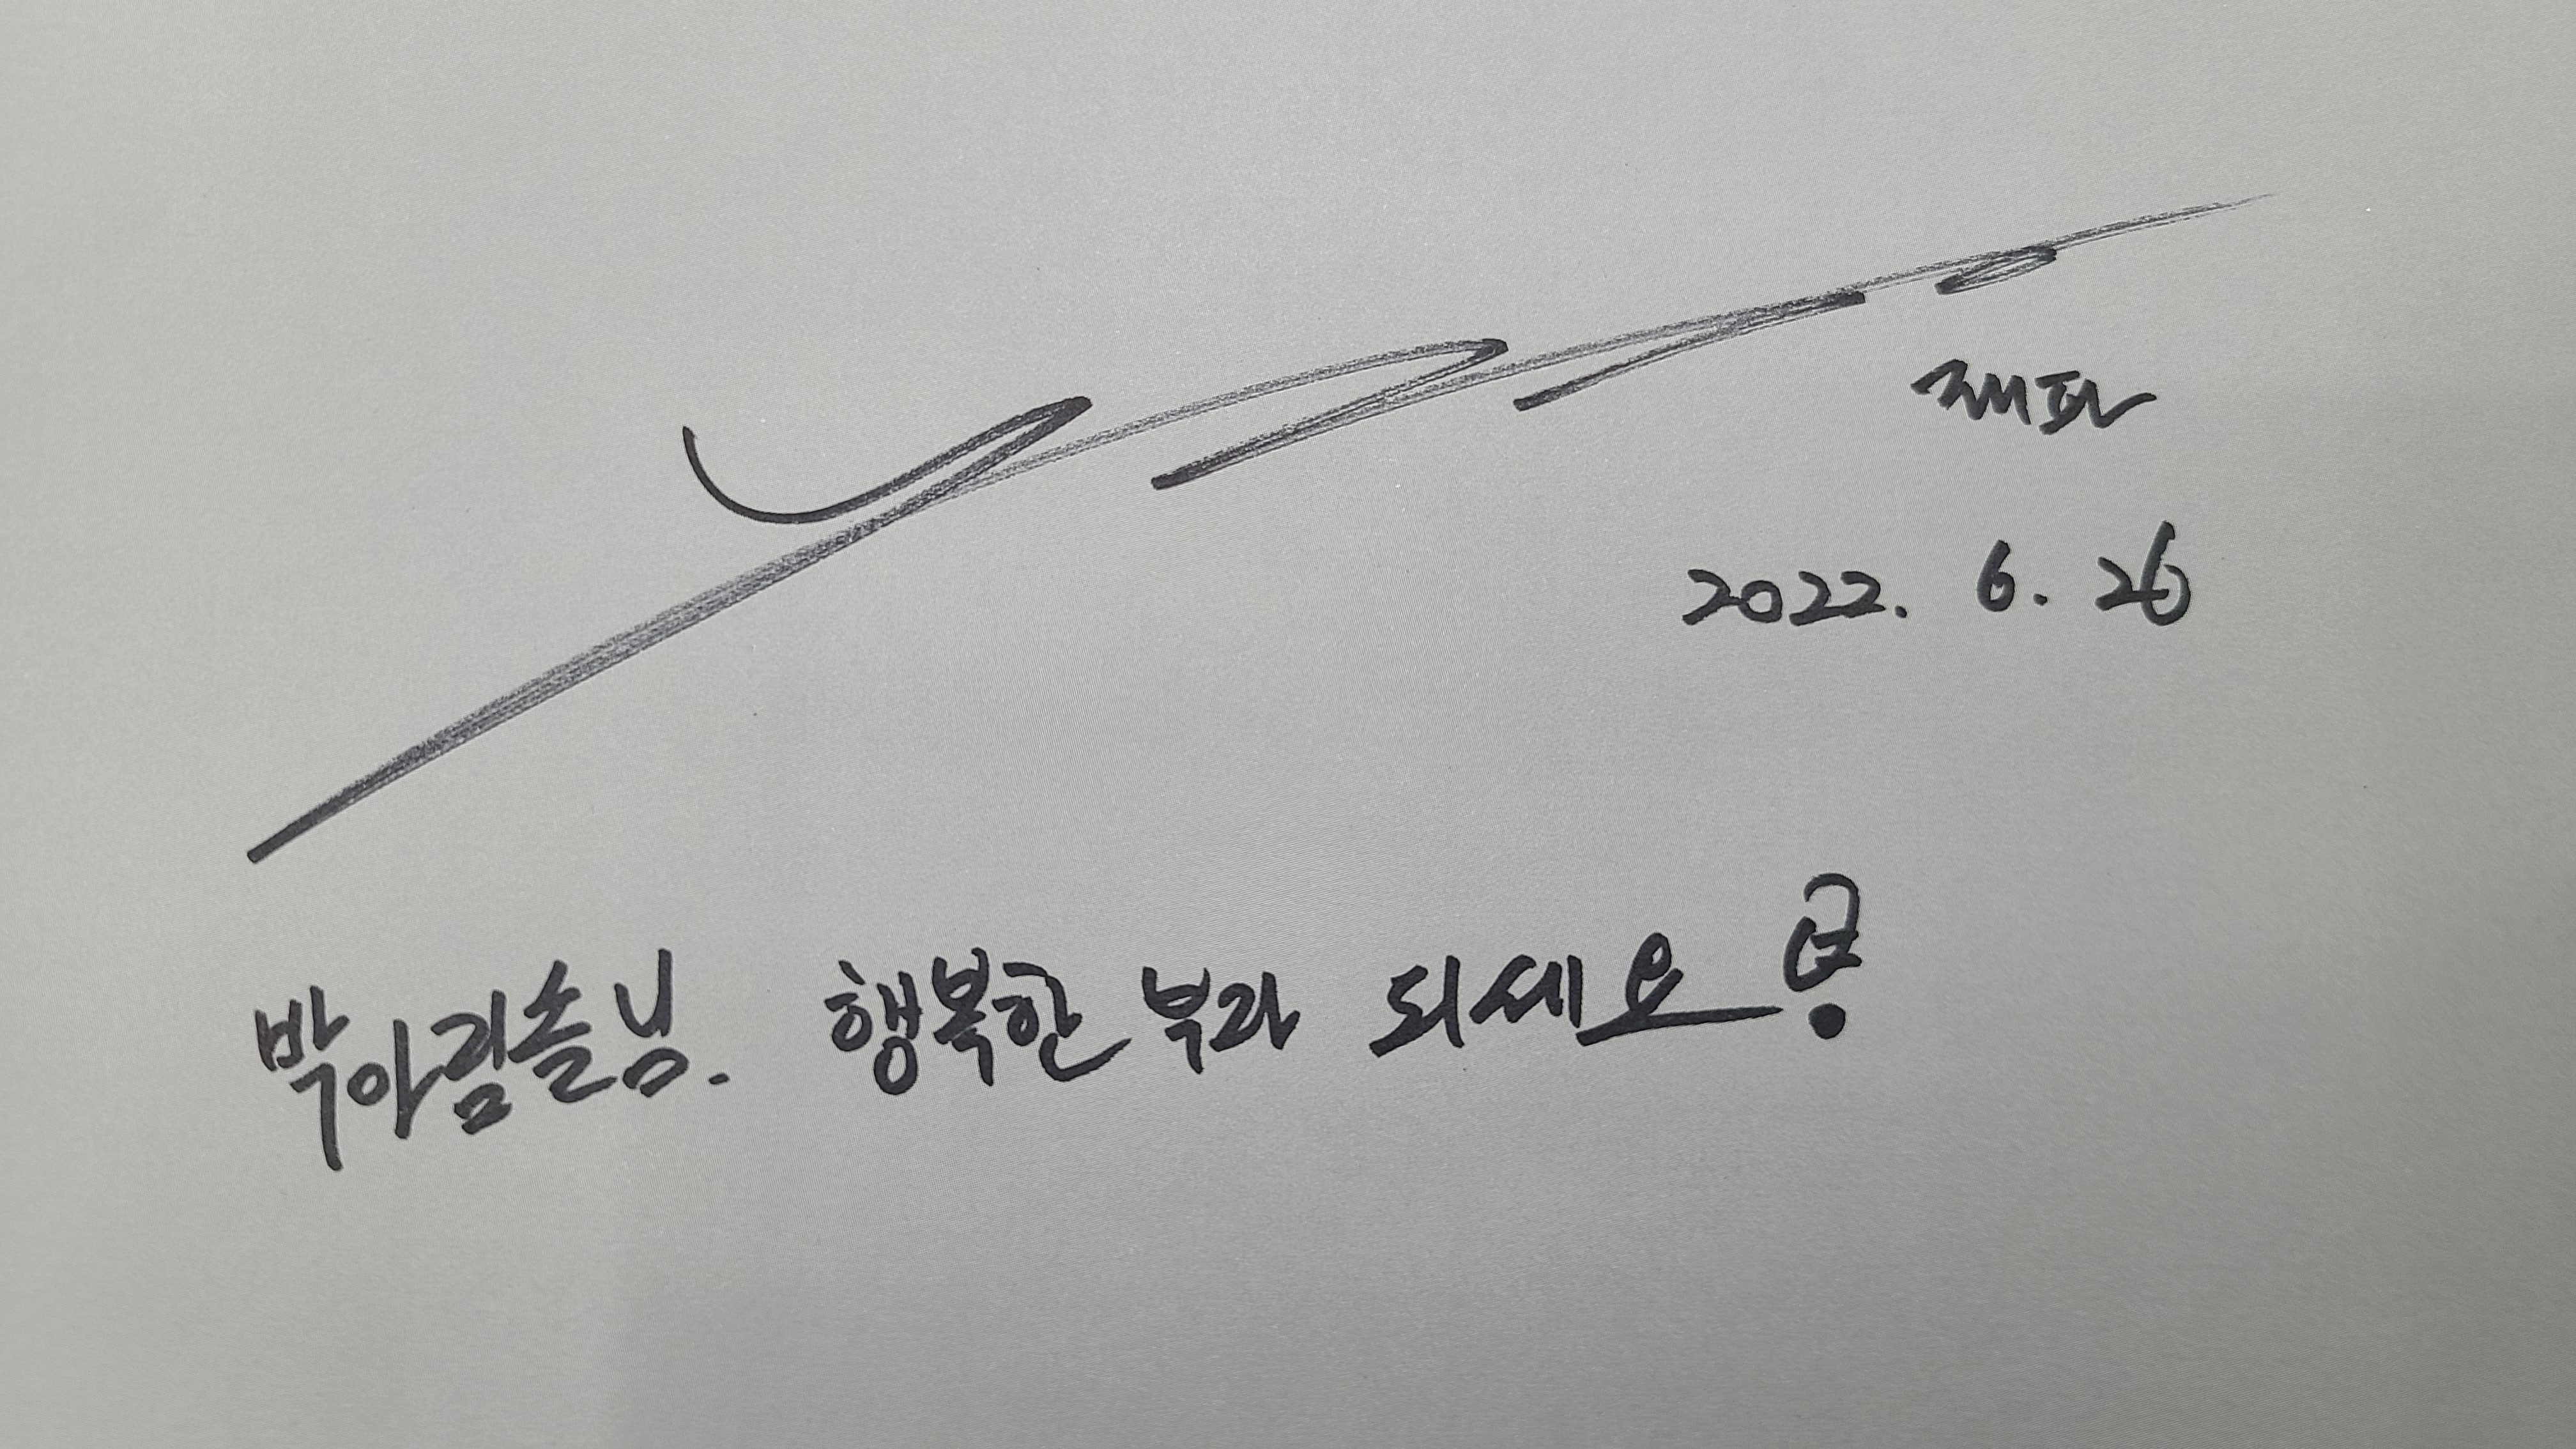 재파
2022. 6. 26
박아림솔님. 행복한 부라 되세요!